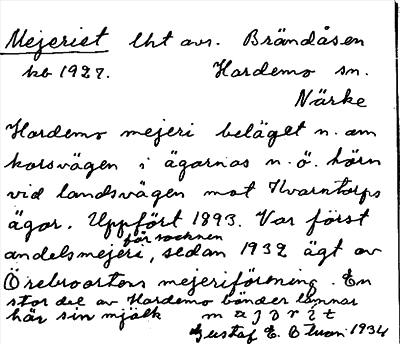 Mejeriet lht avs. Brändåsen
kb 1927. Hardemo sn.
Närke
Hardemo mejeri beläget n. om
korsvägen i ägornas n. ö. hörn
vid landsvägen mot Kvarntorps
ägor. Uppfört 1893. Var först
för socknen
andelsmejeri, sedan 1932 ägt av
Örebroortens mejeriförening. En
stor del av Hardemo bönder lämnar
här sin mjölk majərit
Gustaf E. 1934